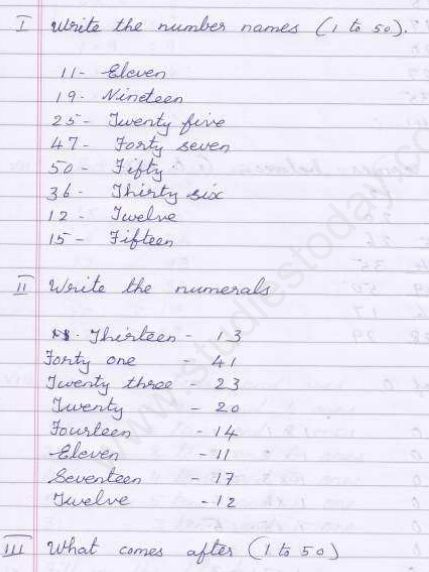 I Write the number names (1 to 50).
11- Eleven
19- Nineteen
25- Twenty five
47- Forty seven
50- Fifty
36- Thirty six
12- Twelve
15- Fifteen
II Write the numerals
Thirteen - 13
Forty one - 41
Twenty three - 23
Twenty - 20
Fourteen - 14
Eleven - 11
Seventeen - 17
Twelve - 12
III What comes after (1 to 50)
www.studiestoday.co